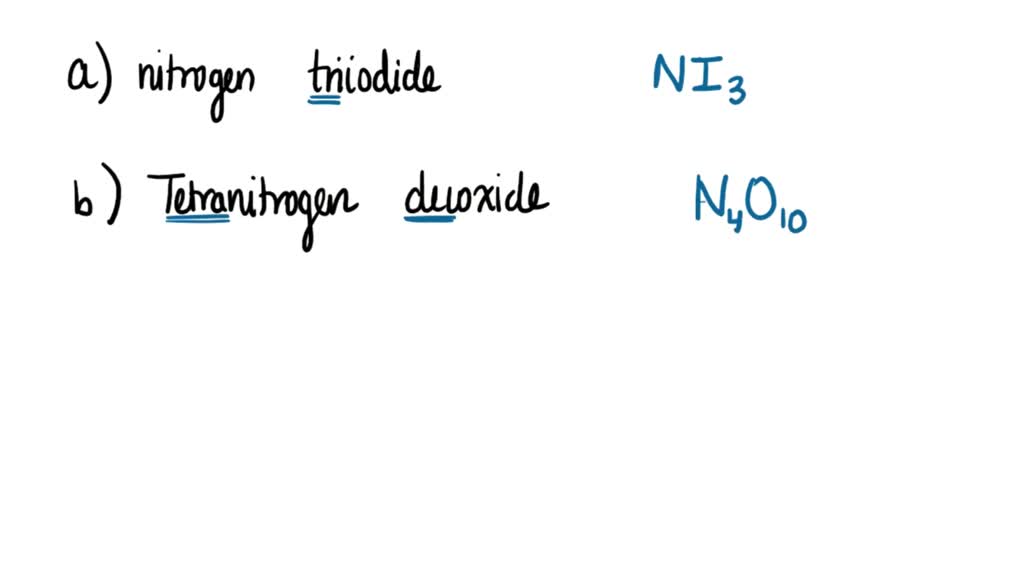 a) nitrogen triiodide NI₃
b) Tetranitrogen decoxide N₄O₁₀